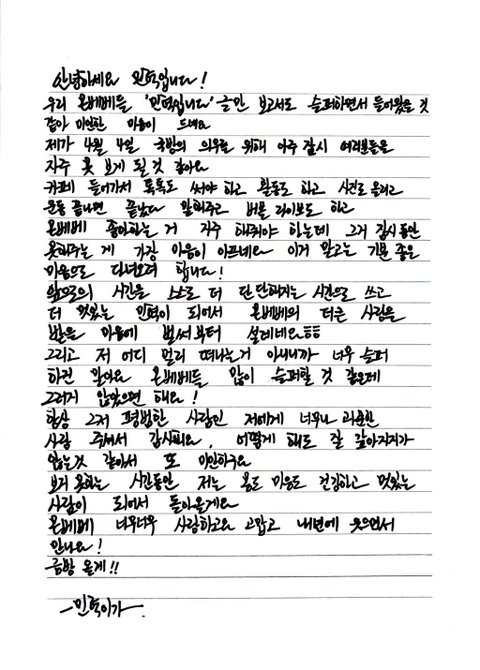 안녕하세요 민혁입니다!
우리 몬베베들 '민혁입니다' 글만 보고서도 슬퍼하면서 들어왔을 것
같아 미안한 마음이 드네요
제가 4월 4일 국방의 의무를 위해 아주 잠시 여러분들을
자주 못 보게 될 것 같아요
카페 들어가서 톡톡도 써야 하고 활동도 하고 사진도 올리고
운동 끝나면 끝났다 말해주고 버블 라이브도 하고
몬베베 좋아하는 거 자주 해줘야 하는데 그거 잠시동안
못해주는 게 가장 마음이 아프네요 이거 말고는 기분 좋은
마음으로 다녀오려 합니다!
앞으로의 시간을 스스로 더 단단해지는 시간으로 쓰고
더 멋있는 민혁이 되어서 몬베베의 더큰 사랑을
받을 마음에 벌써부터 설레네요ㅎㅎ
그리고 저 어디 멀리 떠나는거 아니니까 너무 슬퍼
하진 말아요 몬베베들 많이 슬퍼할 것 같은데
그러지 않았으면 해요!
항상 그저 평범한 사람인 저에게 너무나 과분한
사랑 주셔서 감사해요, 어떻게 해도 잘 갚아지지가
않는것 같아서 또 미안하구요
보지 못하는 시간동안 저는 몸도 마음도 건강하고 멋있는
사람이 되어서 돌아올게요
몬베베 너무너무 사랑하고요 고맙고 내년에 웃으면서
만나요!
금방 올게!!
-민혁이가-.